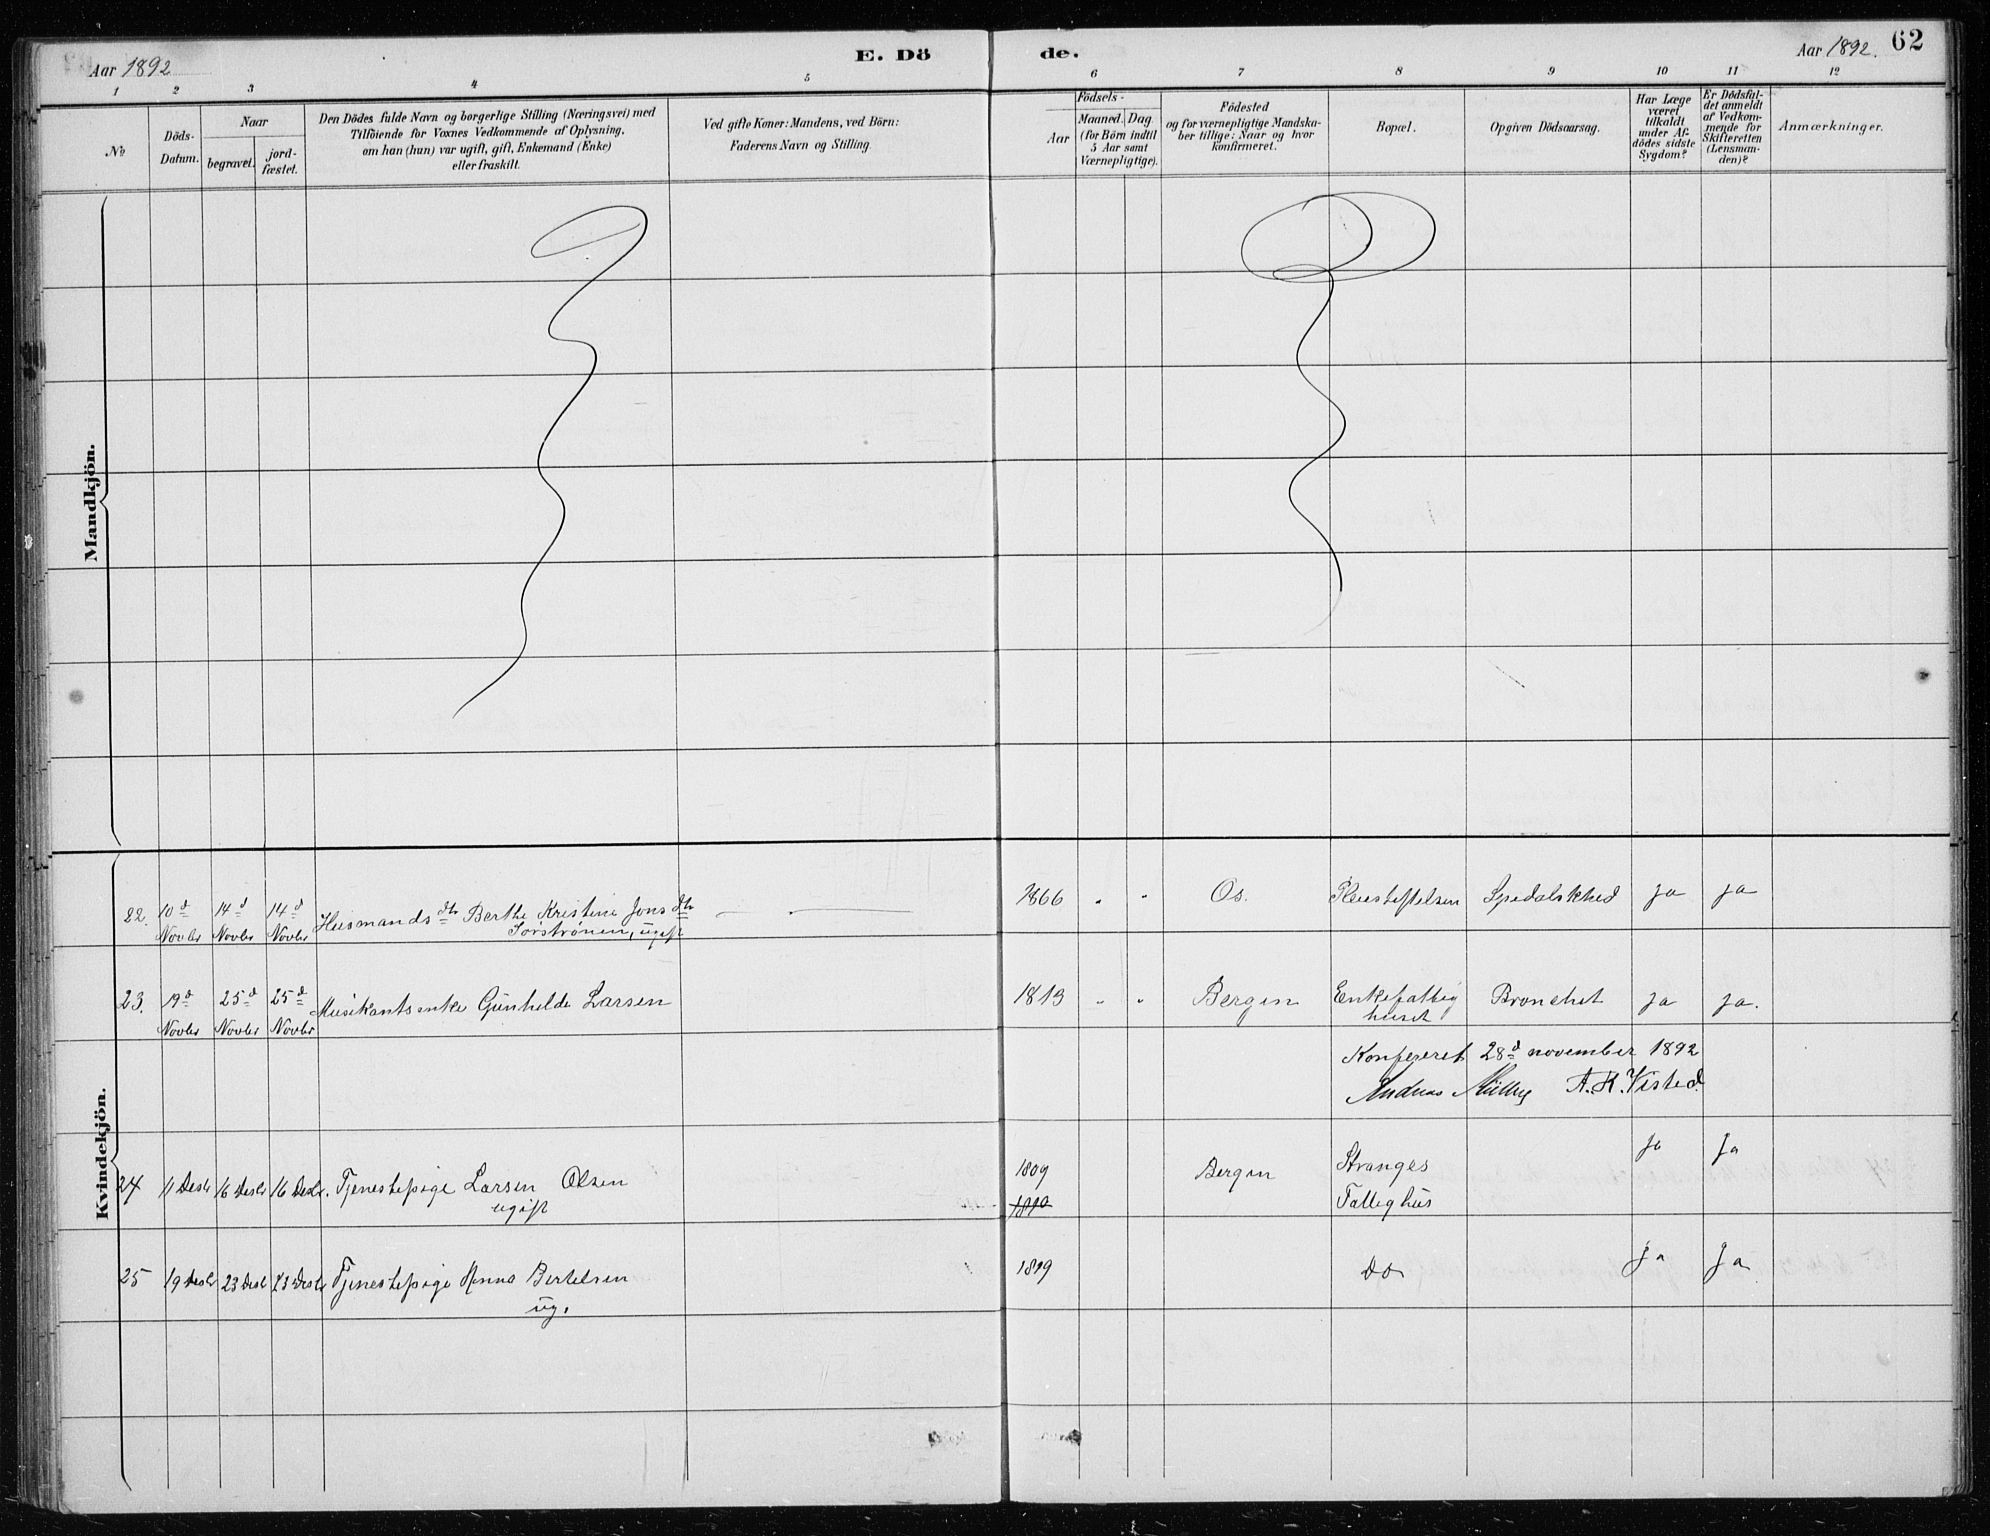 Aar 1892
E. Dö
de.
Aar 1892.
62
1
2
3
4
5
6
7
8
9
10
11
12
№
Döds-
Datum.
Naar
begravet.
jord-
fæstet.
Den Dödes fulde Navn og borgerlige Stilling (Næringsvei) med
Tilföiende for Voxnes Vedkommende af Oplysning,
om han (hun) var ugift, gift, Enkemand (Enke)
eller fraskilt.
Ved gifte Koner: Mandens, ved Börn:
Faderens Navn og Stilling.
Födsels-
Aar
Maaned.
Dag
(for Börn indtil
5 Aar samt
Værnepligtige).
Födested
og for værnepligtige Mandska-
ber tillige: Naar og hvor
konfirmeret.
Bopæl.
Opgiven Dödsaarsag.
Har Læge
været
tilkaldt
under Af-
dödes sidste
Sygdom?
Er Dödsfal-
det anmeldt
af Vedkom-
mende for
Skifteretten
(Lensman-
den)?
Anmærkninger.
Mandkjön.
Kvindekjön.
22. 10d Novbr 14d Novbr 14d Novbr Husmandsdtr Berthe Kristine Jonsdtr 1866 " " Os. Pleiestiftelsen Spedalskhed Ja Ja
Sørstrønen, ugift
23. 19d Novbr 25d Novbr 25d Novbr Musikantsenke Gunhilde Larsen 1813 " " Bergen Enkefattig Bronchit Ja Ja.
huset
Konfereret 28d november 1892
Andreas A. K. Visted.
24 11 Desbr 16 Desbr 16 Desbr. Tjenestepige Larsen Olsen 1809 Bergen Stranges Ja Ja
ugift 1810 Fattighus
25 19 Desbr 23 Desbr 23 Desbr Tjenestepige Anna Bertelsen 1819 Do Ja Ja
ug.